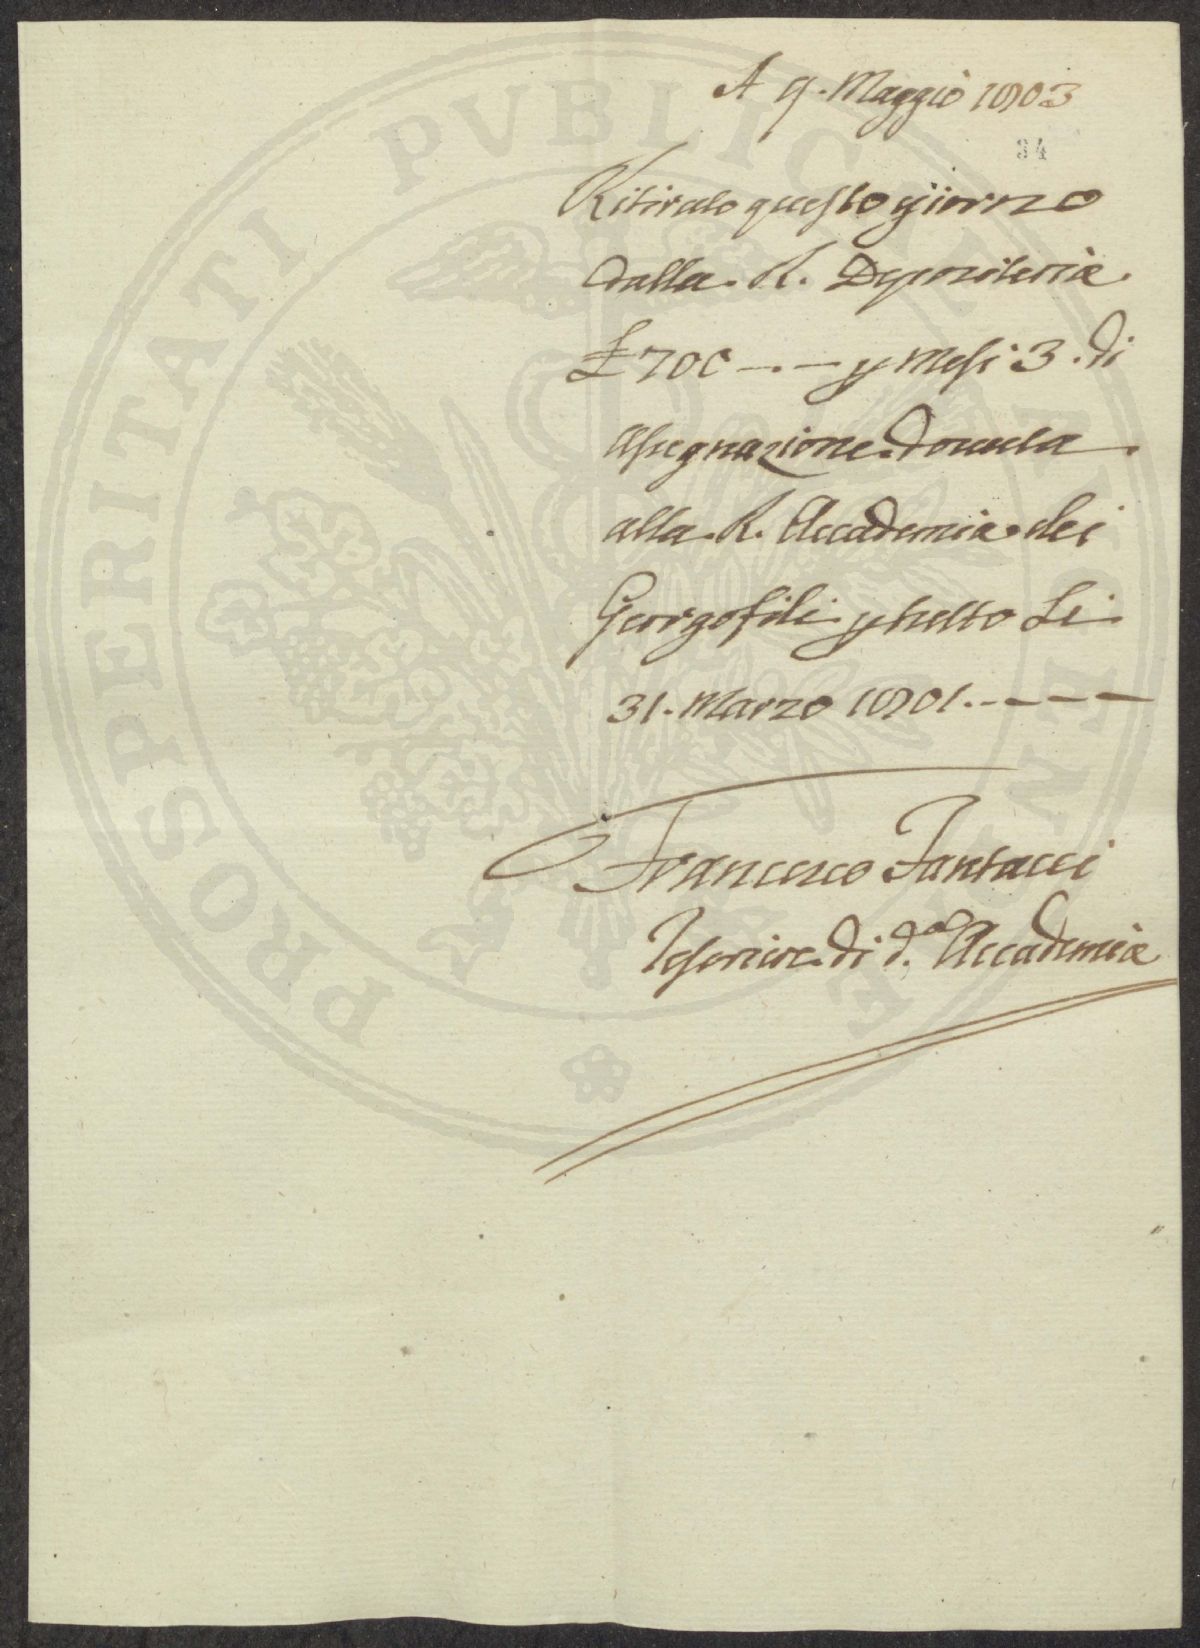 A 9. Maggio 1803
34
Ritirato questo giorno
dalla R. Depositeria
£ 700 -.- p Mesi 3. di
assegnazione dovuta
alla R. Accademia dei
Georgofili p tutto li
31. Marzo 1801.----
Francesco Fantacci
Tesoriere di d.ª Accademia
PROSPERITATI PVBLICAE AVGENDAE